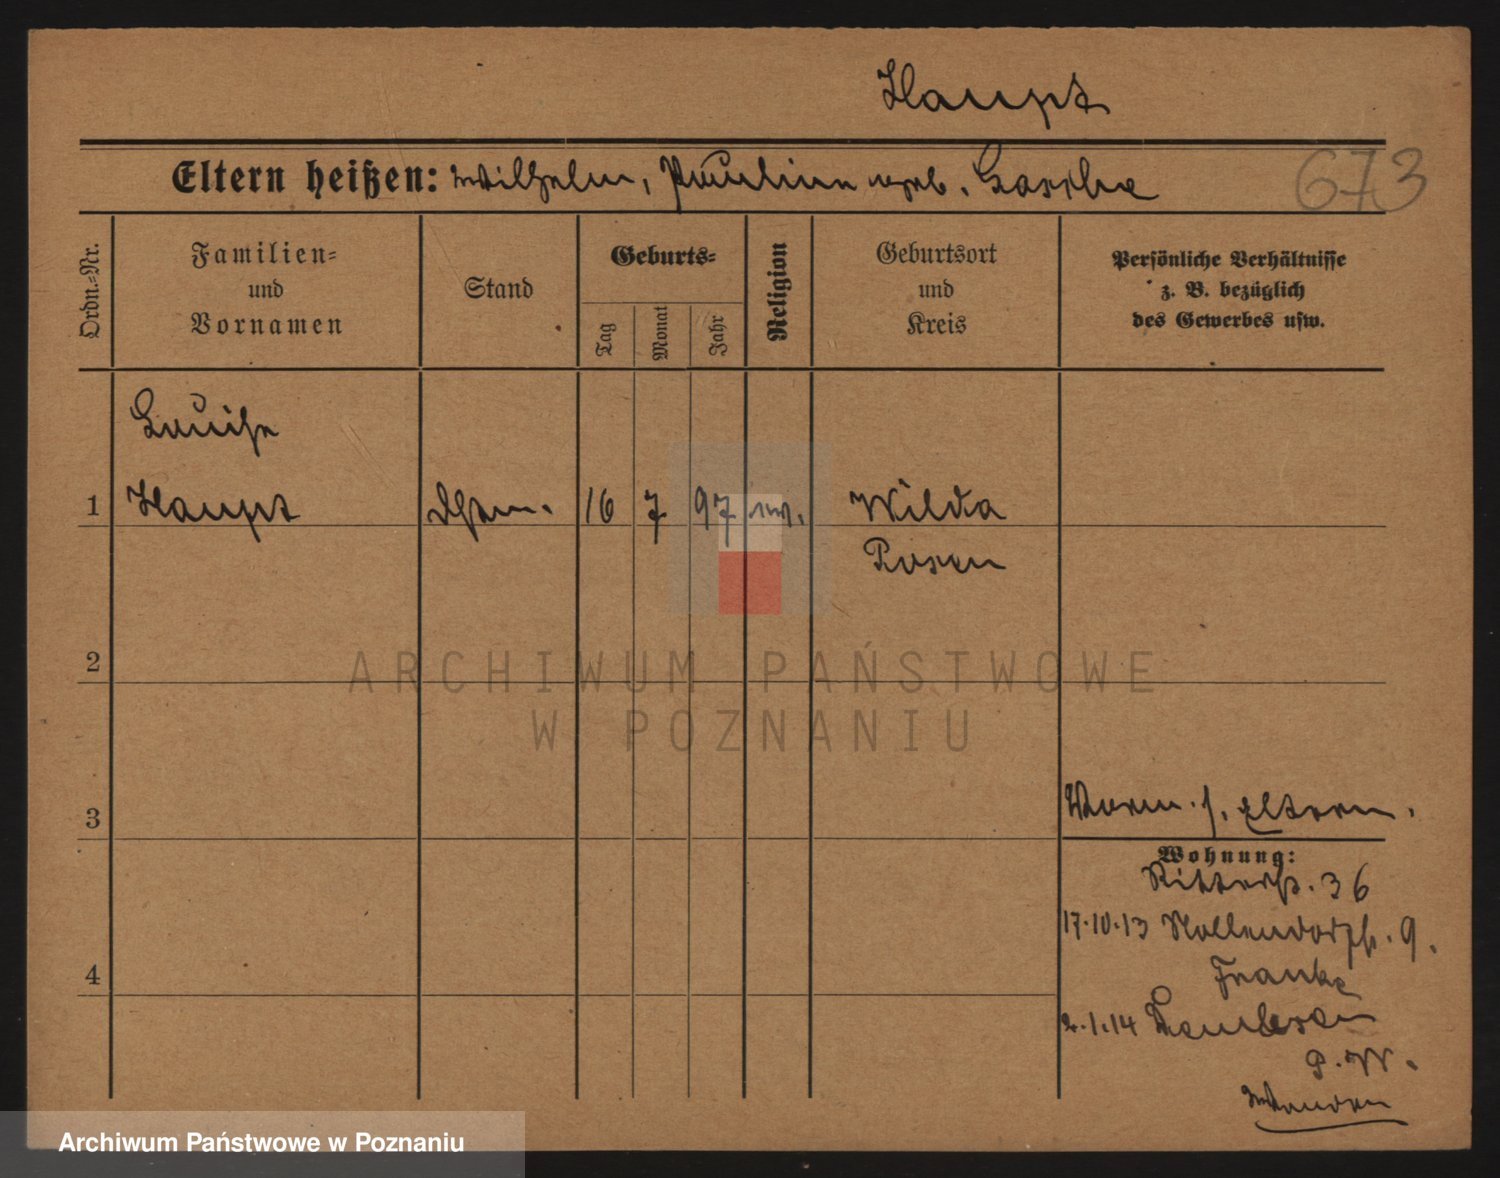 Haupt
Eltern heißen: Wilhelm, Pauline geb.
673
Ordn.-Nr.
Familien-
und
Vornamen
Stand
Geburts-
Tag
Monat
Jahr
Religion
Geburtsort
und
Kreis
Persönliche Verhältnisse
z. B. bezüglich
des Gewerbes usw.
Louise
1 Haupt 16 7 97 ev. Wilda
Posen
2
ARCHIWUM PAŃSTWOWE
W POZNANIU
3
Eltern.
Wohnung:
Ritterstr. 36
17.10.13 Nollendorfstr. 9.
Franke
4
2.1.14
P. W.
Archiwum Państwowe w Poznaniu